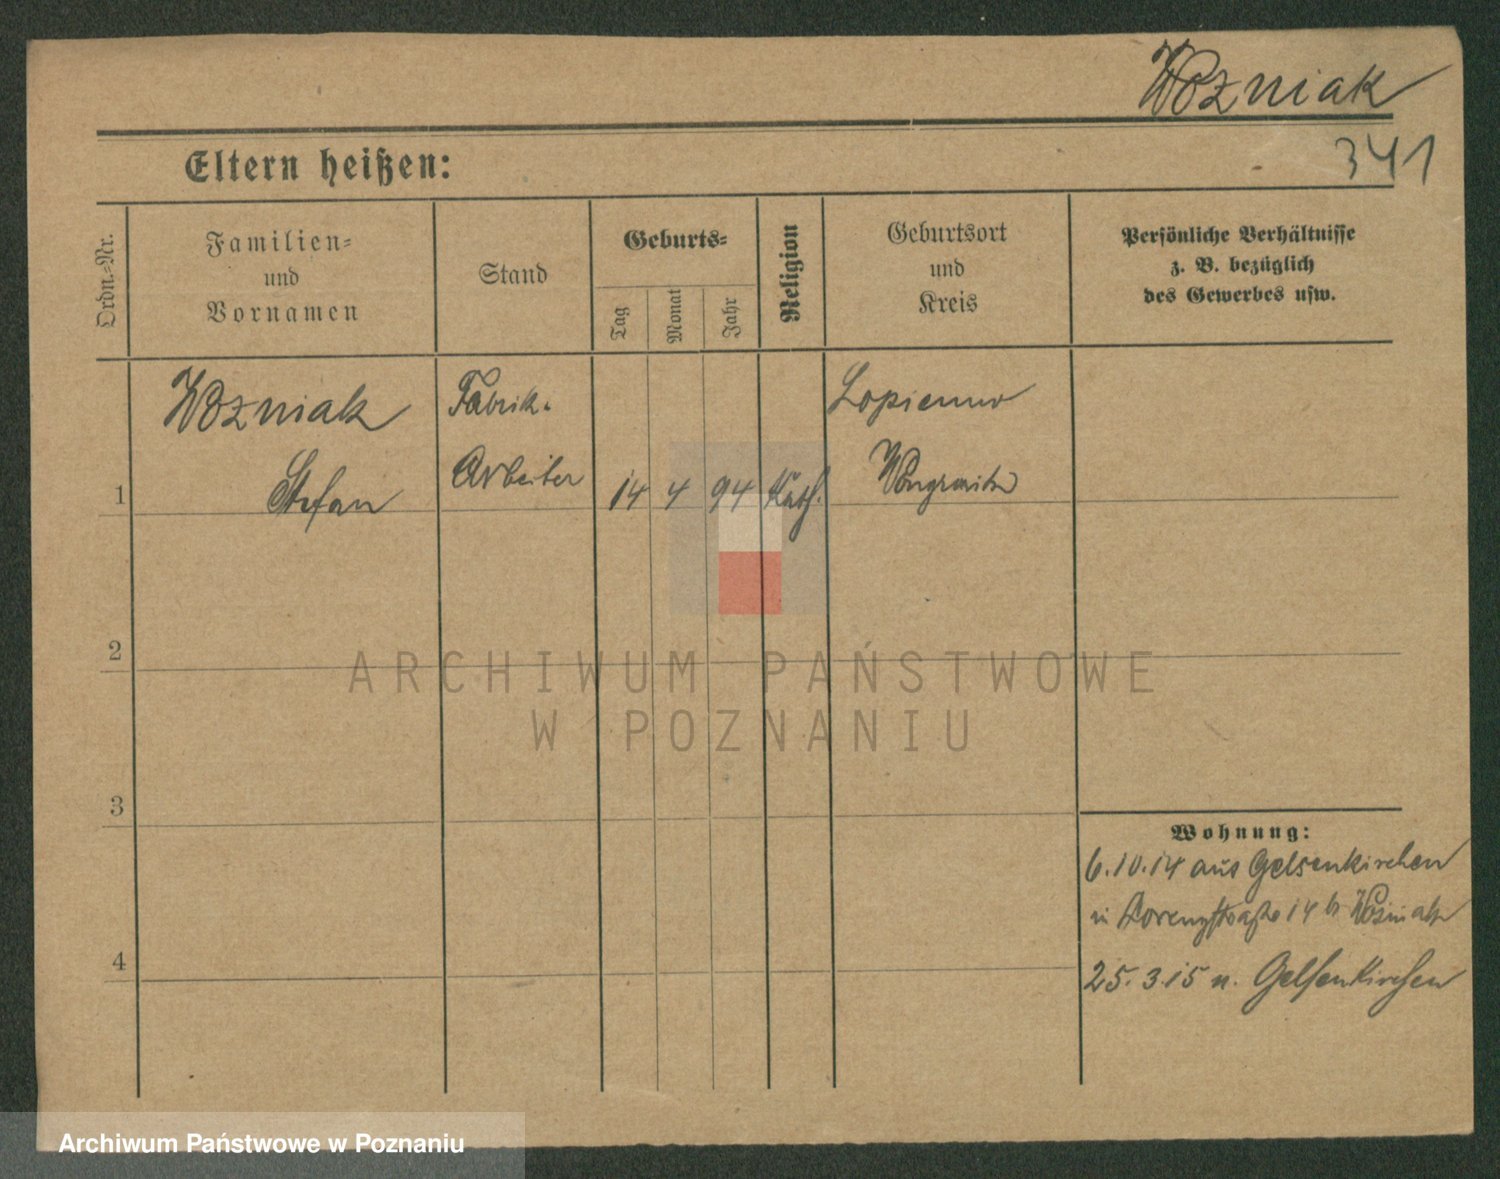 Wozniak
341
Eltern heißen:
Ordn.-Nr.
Familien-
und
Vornamen
Stand
Geburts-
Tag
Monat
Jahr
Religion
Geburtsort
und
Kreis
Persönliche Verhältnisse
z. B. bezüglich
des Gewerbes usw.
Wozniak
Stefan
Fabrik-
Arbeiter
1
14
4
94
Kath.
Lopienno
Wongrowitz
2
3
4
Wohnung:
6.10.14 aus Gelsenkirchen
in Lorenzstraße 14 b Wozniak
25.3.15 n. Gelsenkirchen
ARCHIWUM PAŃSTWOWE
W POZNANIU
Archiwum Państwowe w Poznaniu